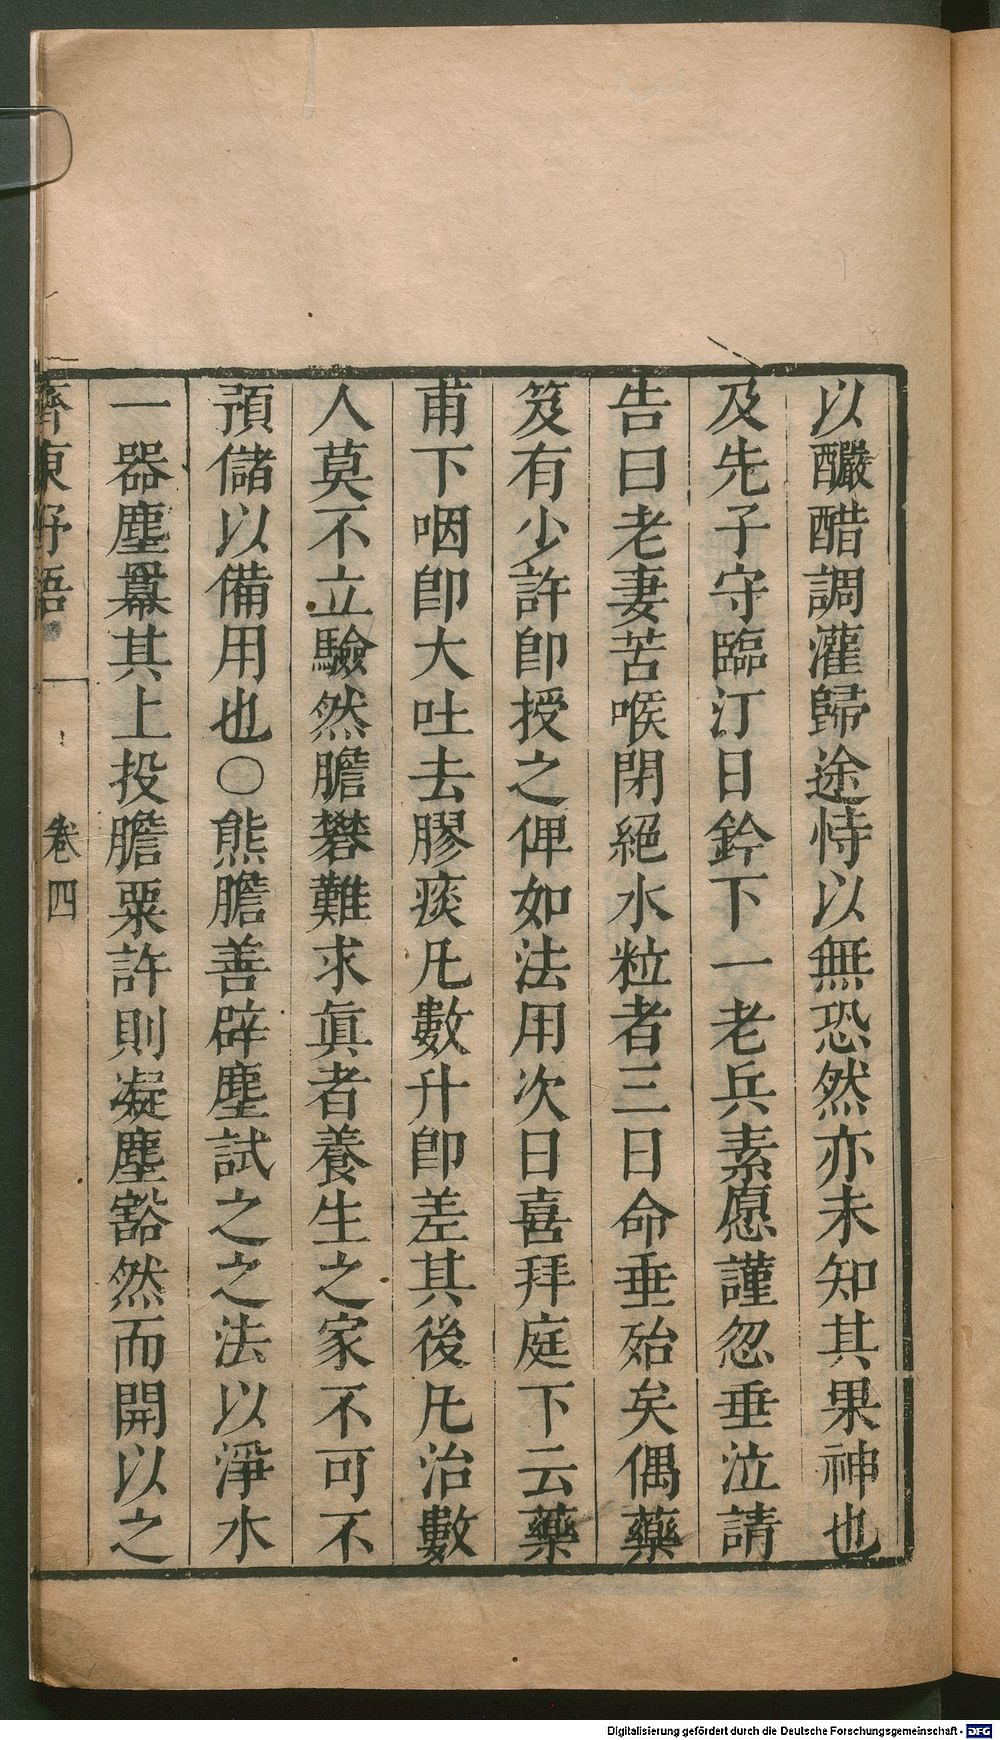 以釅醋調灌歸途恃以無恐然亦未知其果神也
及先子守臨汀日鈐下一老兵素愿謹忽垂泣請
告曰老妻苦喉閉絕水粒者三日命垂殆矣偶藥
笈有少許卽授之俾如法用次日喜拜庭下云藥
甫下咽卽大吐去膠痰凡數升卽差其後凡治數
人莫不立驗然膽礬難求眞者養生之家不可不
預儲以備用也○熊膽善辟塵試之之法以淨水
一器塵羃其上投膽粟許則凝塵豁然而開以之
齊東野語 卷四
Digitalisierung gefördert durch die Deutsche Forschungsgemeinschaft - DFG